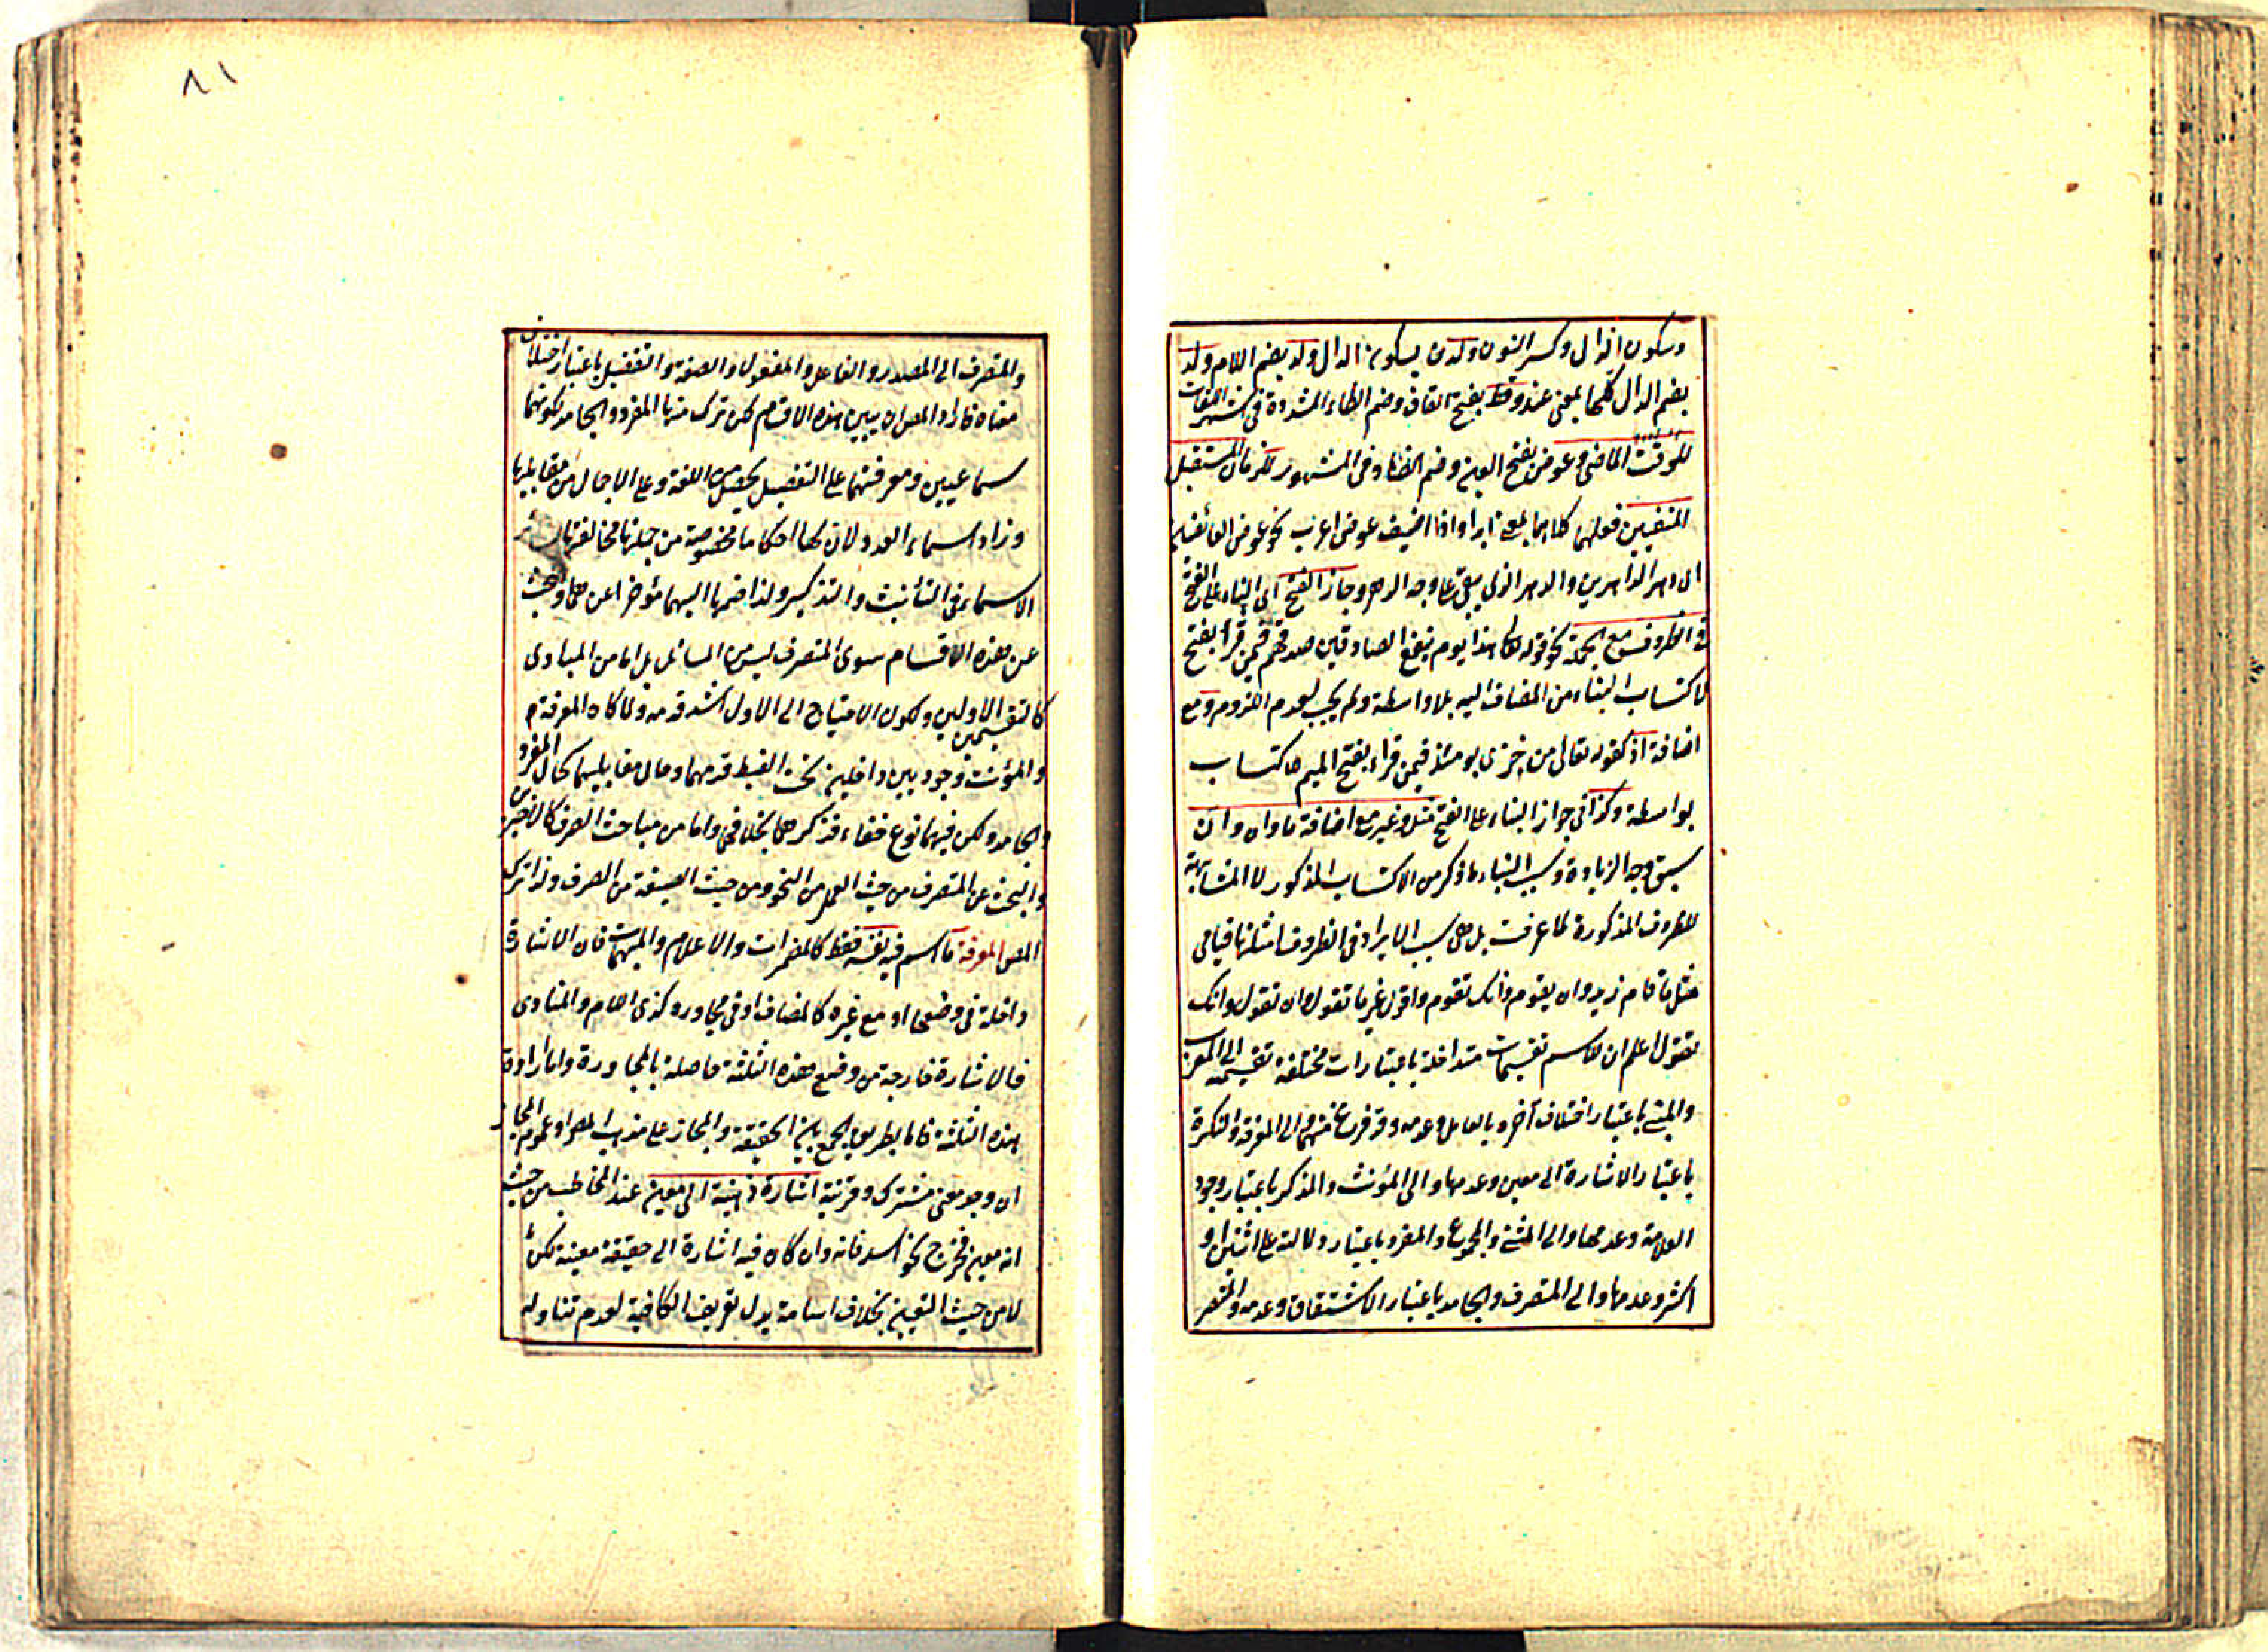 وسكون الدال وكسر النون ولدن بسكون الدال ولد بضم اللام ولد
بضم الدال كلها بمعنى عند وقط بفتح القاف وضم الطاء المشددة فى اشهر اللغات
للوقت الماضى وعوض بفتح العين وضم الضاد فى المشهور للزمان المستقبل
المنفيين فعلهما كلاهما بمعنى ابدا واذا اضيف عوض اعرب نحو عوض العائضين
اى دهر الداهرين والدهر الذى يبقى على وجه الدهر وجاز الفتح اى البناء على الفتح
فى الظروف مع الجملة نحو قوله تعالى هذا يوم ينفع الصادقين صدقهم فيمن قرأ بفتح
لاكتساب البناء من المضاف اليه بلا واسطة ولم يجب لعدم اللزوم ومع
اضافة اذ كقوله تعالى من خزى يومئذ فيمن قراء بفتح الميم لاكتساب
بواسطة وكذا فى جواز البناء على الفتح مثل وغير مع اضافة ما وان وان
سبق وجه الزيادة وسبب البناء ما ذكر من الاكتساب المذكور لا المشابهة
للظروف المذكورة لما عرفت بل هى سبب الايراد فى الظروف امثلتها قيامى
مثل ما قام زيد وان يقوم وانك تقوم واقول غير ما تقول وان تقول وانك
تقول اعلم ان للاسم تقسيمات متداخلة باعتبارات مختلفة تقسيمه الى المعرب
والمبنى باعتبار اختلاف آخره بالعامل وعدمه وقد فرغ منهما والى المعرفة والنكرة
باعتبار الاشارة الى معين وعدمها والى المؤنث والمذكر باعتبار وجود
العلامة وعدمها والى المثنى والمجموع والمفرد باعتبار دلالته على اثنين او
اكثر وعدمها والى المتصرف والجامد باعتبار الاشتقاق وعدمه والمتصر
٨١
والمتصرف الى المصدر والفاعل والمفعول والصفة والتفضيل باعتبار اختلاف
معناه فاراد المص ان يبين هذه الاقسام لكن ترك منها المفرد والجامد لكونهما
سماعيين ومعرفتهما على التفصيل يحصل من اللغة وعلى الاجمال من مقابليها
وزاد اسماء العدد لان لها احكاما مخصوصة من جملتها مخالفتها سائر
الاسماء فى التأنيث والتذكير ولذا ضمها اليهما مؤخرا عن هما والبحث
عن هذه الاقسام سوى المتصرف ليس من المسائل بل اما من المبادى
كالتقسيمين الاولين ولكون الاحتياج الى الاول اشد قدمه ولما كان المعرفة م
والمؤنث وجوديين داخلين تحت الضبط قدمهما وحال مقابليهما كحال المفرد
والجامد ولكن فيهما نوع خفاء فذكرهما بخلافهما واما من مباحث الصرف كالاخيرين
والبحث عن المتصرف من حيث العمل من النحو ومن حيث الصيغة من الصرف ولذا ترك
المص المعرفة ما اسم فيه نفسه فقط كالمضمرات والاعلام والمبهمات فان الاشارة
داخلة فى وضعها او مع غيره كالمضاف او فى مجاوره كذى اللام والمنادى
فالاشارة خارجة من وضع هذه الثلثة حاصلة بالمجاورة واما ارادة
هذه الثلثة فاما بطريق الجمع بين الحقيقة والمجاز على مذهب المص او عموم المجاز
ان وجد معنى مشترك وقرينة اشارة ذهنية الى معين عند المخاطب من حيث
انه معين فخرج نحو اسد فانه وان كان فيه اشارة الى حقيقة معينة لكن
لا من حيث التعيين بخلاف اسامة بدل تعريف الكافية لعدم تناوله